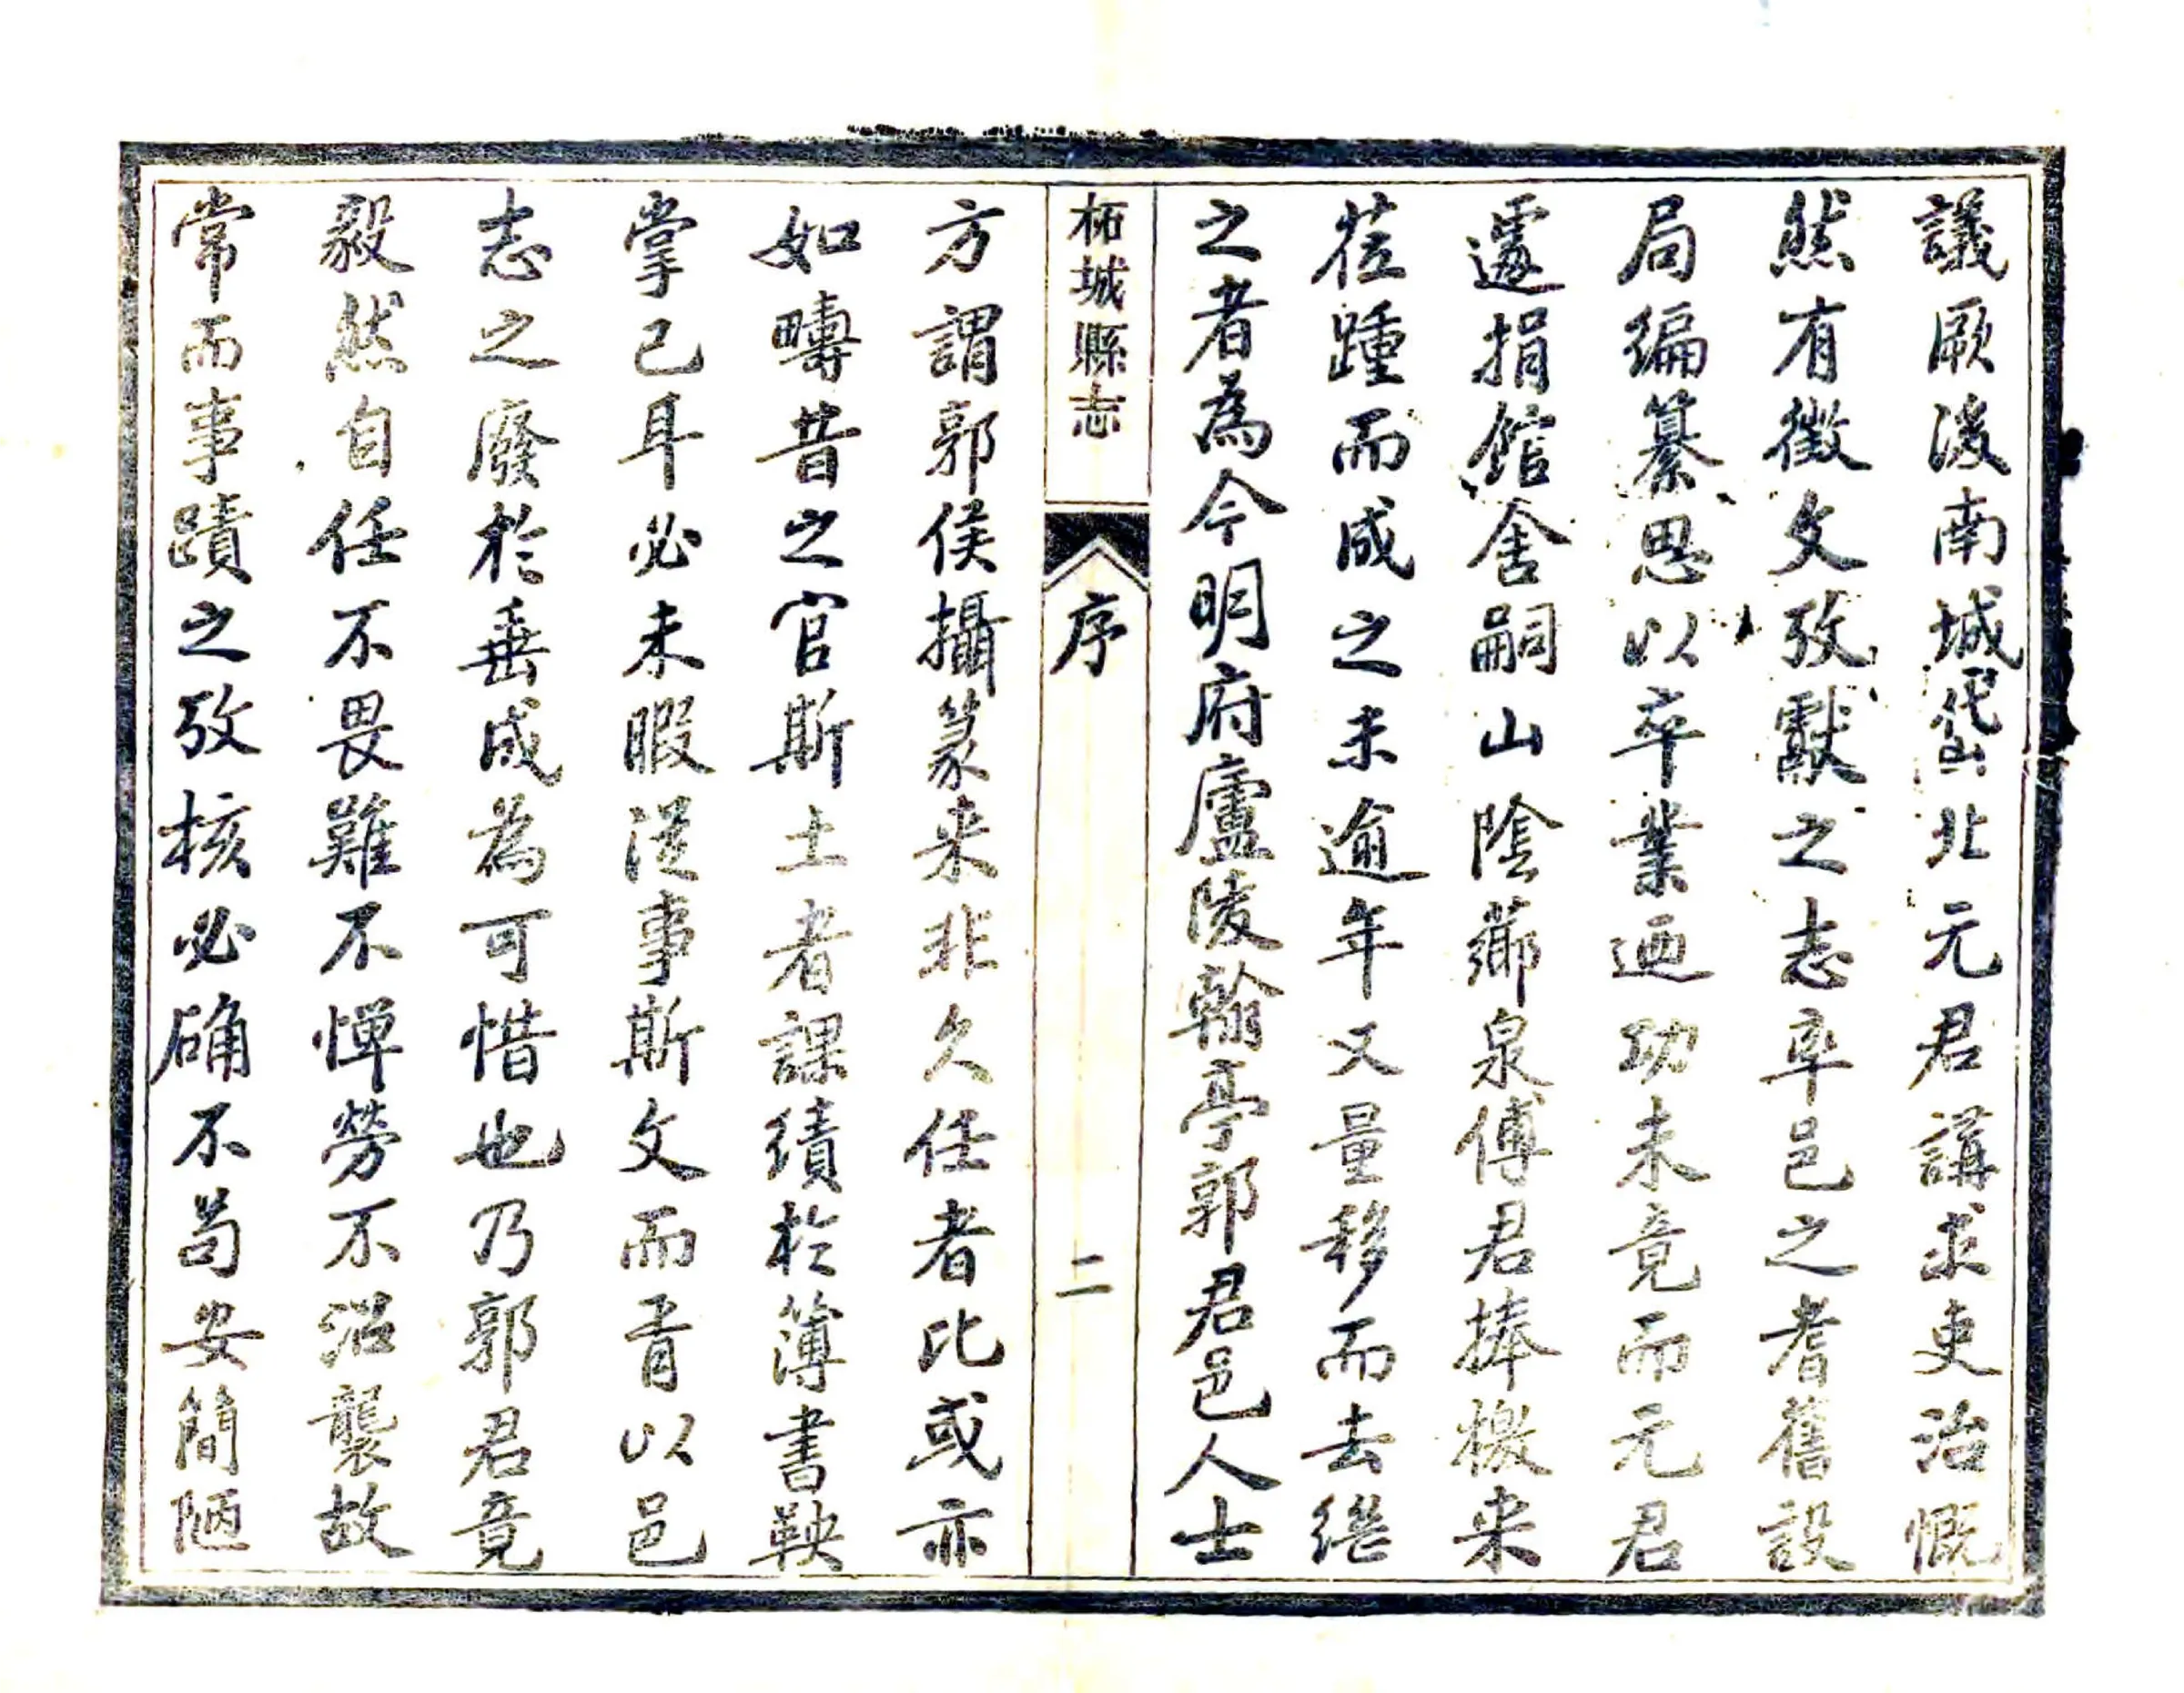 議厥後南城岱北元君講求吏治慨
然有徵文攷獻之志率邑之耆舊設
局編纂思以卒業迺功未竟而元君
遽捐館舍嗣山陰薌泉傅君捧檄来
莅踵而成之未逾年又量移而去繼
之者為今明府廬陵翰亭郭君邑人士
柘城縣志
序
二
方謂郭侯攝篆来非久任者比或亦
如疇昔之官斯土者課績於簿書鞅
掌已耳必未暇從事斯文而胥以邑
志之廢於垂成為可惜也乃郭君竟
毅然自任不畏難不憚勞不沿襲故
常而事蹟之攷核必确不苟安簡陋